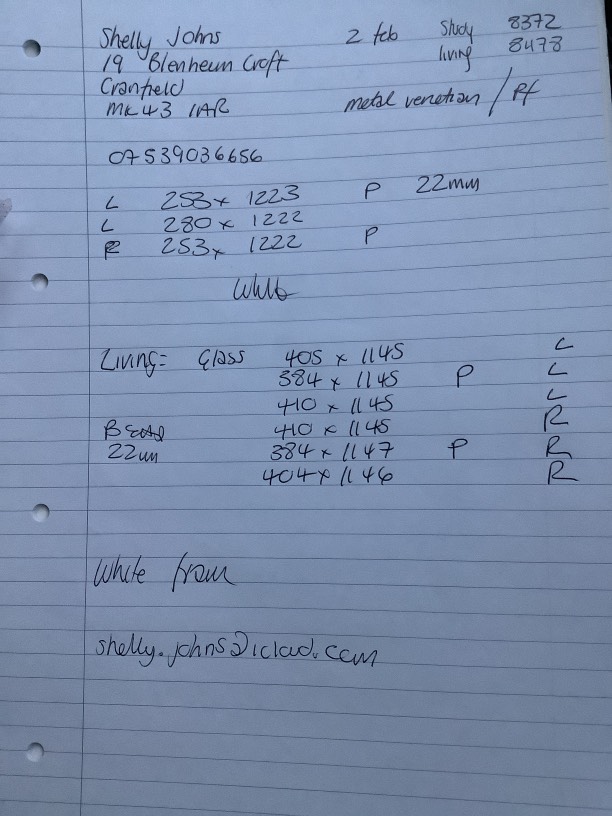 Shelly Johns 2 feb Study 8372
19 Blenheim Croft living 8478
Cranfield
MK43 1AR metal venetian / Pf
07539036656
L 253 x 1223 P 22mm
L 280 x 1222
R 253 x 1222 P
White
Living = Glass 405 x 1145 L
384 x 1145 P L
410 x 1145 L
Bead 410 x 1145 R
22mm 384 x 1147 P R
404 x 1146 R
White fram
shelly.johns@iclod.com